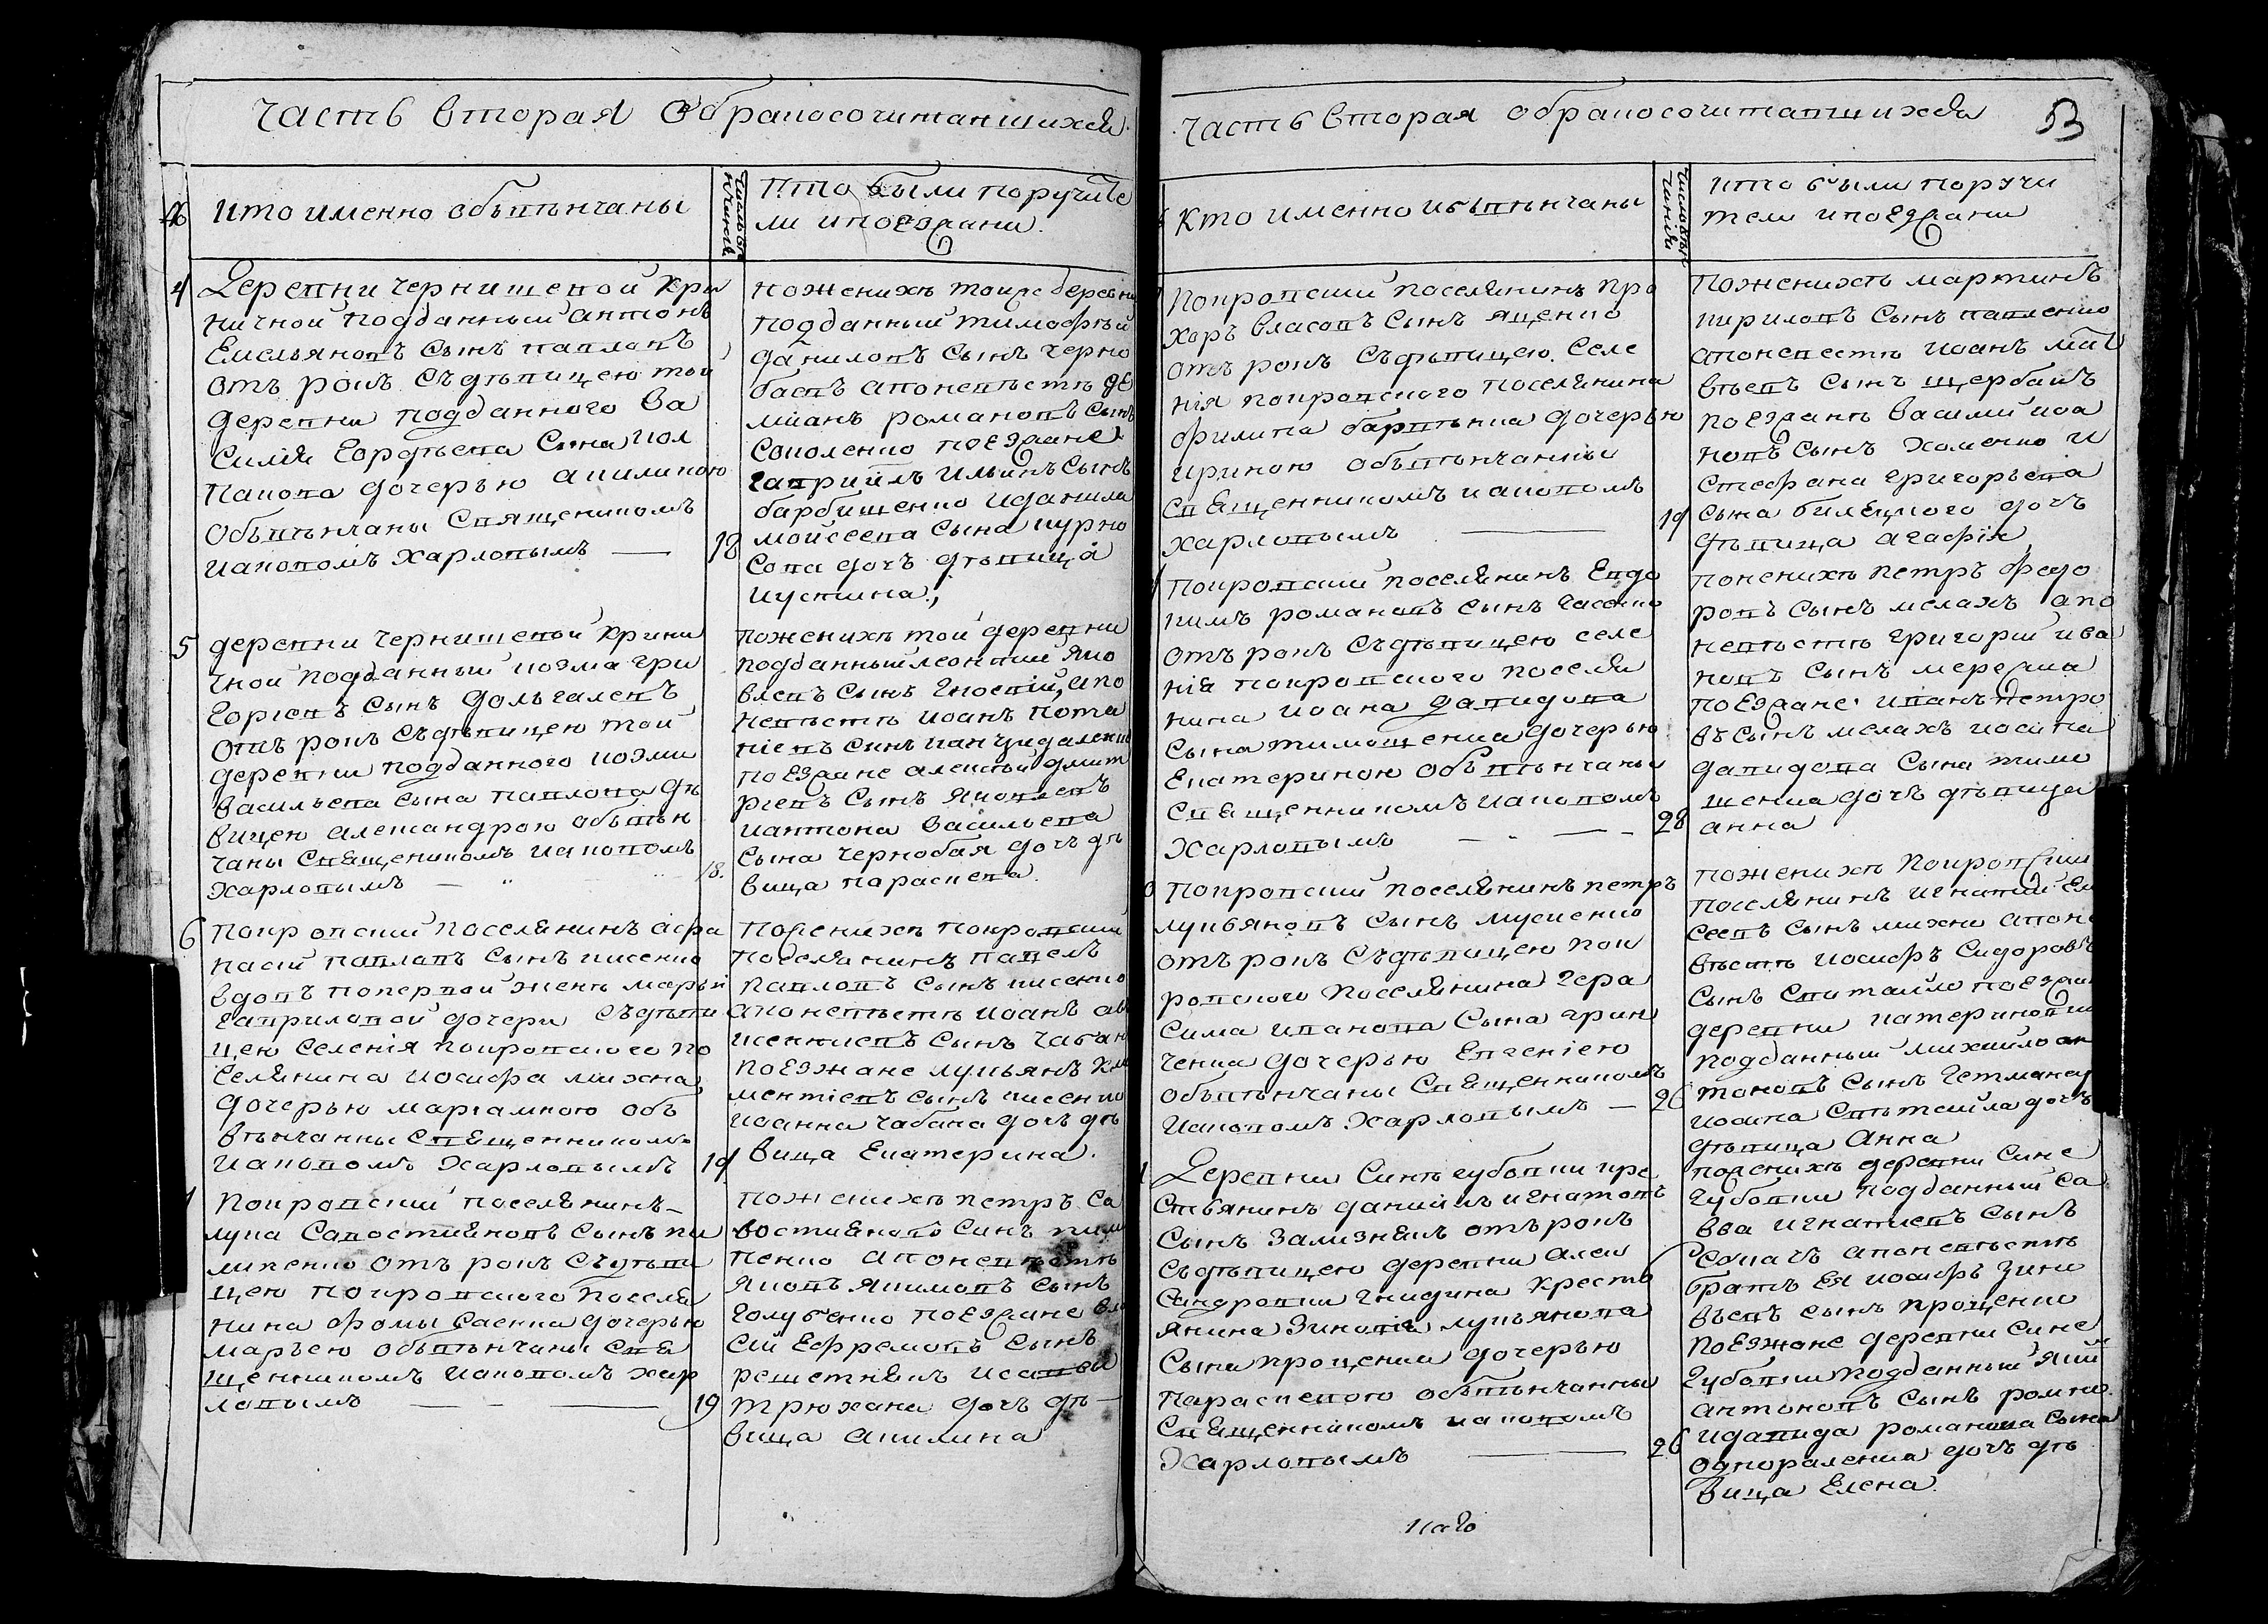 Часть вторая Обракосочитавшихся
№
Кто именно обвѣнчаны
Кто были поручите
ли ипоезжани.
4
Деревни чернишевой кри
ничной подданный антонъ
Емельяновъ сынъ павловъ
отъ рокъ съдѣвицею той
деревни подданного ва
силія
сына кол
пакова дочерью акилиною
обвѣнчаны священикомъ
иаковомъ харловымъ —
18
поженихѣ тойже деревни
подданный тимофѣй
даниловъ сынъ черно
баевъ апоневѣстѣ де
міанъ романовъ сынъ
соколенко поезжане
гавріилъ ильинъ сынъ
барбищенко иданила
мойсеева сына
дочъ дѣвица
иустина
5
деревни чернишевой крини
чной подданный козма гри
горіевъ сынъ
отъ рокъ съдѣвицею той
деревни подданного козми
васильева сына павлова дѣ
вицею александрою обвѣн
чаны священикомъ иаковомъ
харловымъ —
18.
поженихѣ той деревни
подданный леонтий яко
влевъ сынъ
апо
невѣстѣ иоанъ пота
піевъ сынъ
поезжане алексѣй дмит
ріевъ сынъ яковлевъ
иантона васильева
сына чернобая дочъ дѣ
вица параскева.
6
покровский поселянинъ афа
насій павловъ сынъ кисенко
вдовъ попервой женѣ марьи
гавриловой дочери съдѣви
цею селенія покровского по
селянина иосифа михна
дочерью маріамною обвѣнчанны священникомъ
иаковомъ харловымъ
19
поженихѣ покровский
поселянинъ павелъ
павловъ сынъ кисенко
апоневѣстѣ иоанъ ав
ксентиевъ сынъ чабан
поезжане лукьянъ кли
ментіевъ сынъ кисенко
иоанна чабана дочъ дѣ
вица екатерина.
покровский поселянинъ
лука савостияновъ сынъ пи
липенко отъ рокъ съдѣви
цею покровского поселя
нина фомы саенка дочерью
марьею обвѣнчаны свя
щенникомъ иаковомъ хар
ловымъ — —
19
поженихѣ петръ са
востияновъ синъ пили
пенко апоневѣстѣ
яковъ якимовъ сынъ
голубенко поезжане
сій ефремовъ сынъ
решетнякъ исавей
трюхана дочъ дѣ
вица акилина
Часть вторая обракосочитавшихся
53
Кто именно иобвѣнчаны
кто были поручи
тели ипоезжани
покровский поселянинъ про
хоръ власовъ сынъ яценко
отъ рокъ съдѣвицею. селе
нія покровского поселянина
филипа барвѣнка дочерью
ириною обвѣнчанны
священникомъ иаковомъ
харловымъ —
19
поженихѣ мартинъ
кириловъ сынъ павленко
апоневестѣ иоанъ мат
вѣевъ сынъ щербакъ
поезжанѣ василий иоа
новъ сынъ хоменко и
стефана григорьева
сына билецкого дочъ
дѣвица агафія
покровский поселянинъ евдо
кимъ романовъ сынъ
отъ рокъ съдѣвицею селе
нія покровского поселя
нина иоана давидова
сына тимошенка дочерью
екатериною обвѣнчаны
священникомъ иаковомъ
харловымъ — —
28
поженихѣ петръ федо
ровъ сынъ мелахъ апо
невѣстѣ григорий ива
новъ сынъ
поезжане иванъ петро
въ сынъ мелахъ иосипа
давидова сына тимо
шенка дочъ дѣвица
анна
покровский поселянинъ петръ
лукьяновъ сынъ мусиенко
отъ рокъ съдѣвицею пок
ровского поселянина гера
сима иванова сына грин
ченка дочерью евгеніею
обвѣнчаны священникомъ
иаковомъ харловымъ —
26
поженихѣ покровский
поселянинъ игнатий ели
сеевъ сынъ михно апоне
вѣстѣ иосифъ сидоровъ
сынъ свитайло поезжани
деревни катериновки
подданный михайло ан
тоновъ сынъ гетманец
иосипа свѣтайла дочъ
дѣвица Анна
деревни синегубовки кре
стьянинъ даниилъ игнатовъ
сынъ зализнякъ отъ рокъ
съдѣвицею деревни алек
сандровки гнидина кресть
янина зиновія лукьянова
сына проценка дочерью
параскевою обвѣнчанны
священникомъ иаковомъ
харловымъ —
26
поженихѣ деревни сине
губовки подданный са
ва игнатиевъ сынъ
апоневѣстѣ
братъ ея иосифъ зино
вьевъ сынъ проценко
поезжане деревни сине
губовки подданный яким
антоновъ сынъ
идавида романова сына
дочъ дѣ
вица елена.